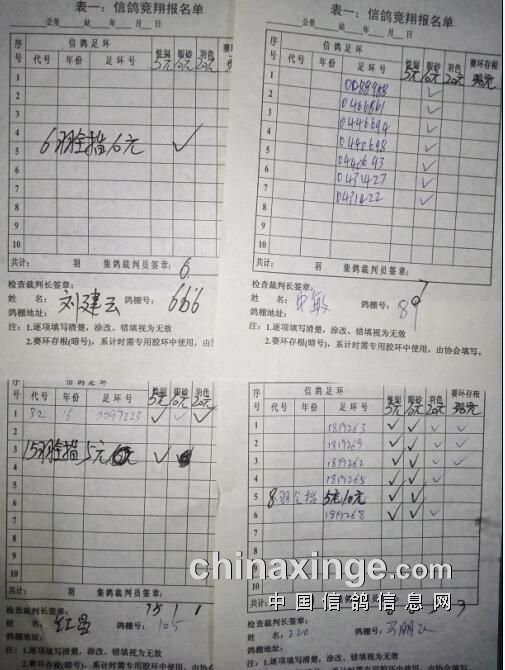 表一：信鸽竞翔报名单
公里 站 年 月 日
序号 信鸽足环 性别 眼砂 羽色 赛环存根
代号 年份 足环号 5元 10元 20元
1
2
3
4
5 6羽全指10元 ✓
6
7
8
9
10
共计： 羽 集鸽裁判员签章： 6
检查裁判长签章：
姓 名：刘建云 鸽棚号：666
鸽棚地址：
注：1.逐项填写清楚，涂改、错填视为无效
2.赛环存根(暗号)，系计时需专用胶环中使用，由协
表一：信鸽竞翔报名单
公里 站 年 月 日
序号 信鸽足环 性别 眼砂 羽色 赛环存根
代号 年份 足环号 5元 10元 20元
1 ✓
2 0466861 ✓
3 0446694 ✓
4 0440698 ✓
5 0440693 ✓
6 0431427 ✓
7 0431422 ✓
8
9
10
共计： 羽 集鸽裁判员签章： 7
检查裁判长签章：
姓 名： 敏 鸽棚号：89
鸽棚地址：
注：1.逐项填写清楚，涂改、错填视为无效
2.赛环存根(暗号)，系计时需专用胶环中使用，由协会填写。
序号 信鸽足环 性别 眼砂 羽色
代号 年份 足环号 5元 10元 20元
1 32 16 0097223 ✓ ✓ ✓
2
3 15羽全指5元 ✓
4
5
6
7
8
9
10
共计： 羽 集鸽裁判员签章：
检查裁判长签章： 15 1 1
姓 名： 鸽棚号：105
鸽棚地址：
注：1.逐项填写清楚，涂改、错填视为无效
序号 信鸽足环 性别 眼砂 羽色 赛环存根
代号 年份 足环号 5元 10元 20元
1 1819263 ✓ ✓ ✓ ✓
2 1819269 ✓ ✓ ✓ ✓
3 1819262 ✓ ✓ ✓ ✓
4 1819265 ✓ ✓ ✓
5 8羽全指 5元10元 ✓ ✓
6 1819268 ✓ ✓ ✓
7
8
9
10
共计：
chinaxinge.com
中国信鸽信息网
检查裁判长签章：
姓 名：220 鸽棚号：
鸽棚地址：
注：1.逐项填写清楚，涂改、错填视为无效